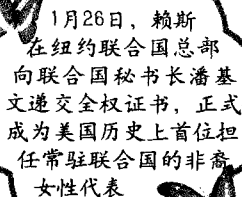 1月26日，赖斯
在纽约联合国总部
向联合国秘书长潘基
文递交全权证书，正式
成为美国历史上首位担
任常驻联合国的非裔
女性代表